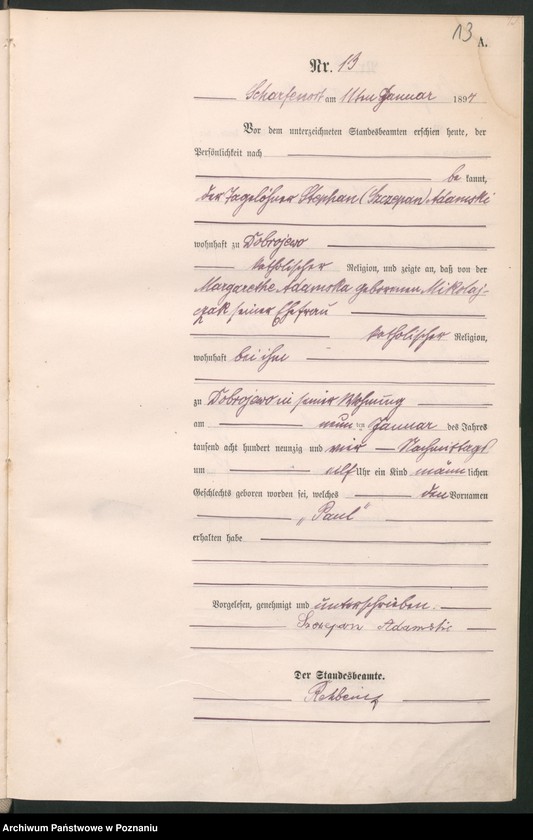 13
A.
Nr. 13
Scharfenort am 11ten Januar 1894
Vor dem unterzeichneten Standesbeamten erschien heute, der
Persönlichkeit nach
be kannt,
der Tagelöhner Stephan (Szczepan) Adamski
wohnhaft zu Dobrojewo
katholischer Religion, und zeigte an, daß von der
Margarethe Adamska geborenen Mikolaj-
czak seiner Ehefrau
katholischer Religion,
wohnhaft bei ihm
zu Dobrojewo in seiner Wohnung
am neun ten Januar des Jahres
tausend acht hundert neunzig und vier Nachmittags
um elf Uhr ein Kind männ lichen
Geschlechts geboren worden sei, welches den Vornamen
„Paul“
erhalten habe
Vorgelesen, genehmigt und unterschrieben.
Adamski
Der Standesbeamte.
Archiwum Państwowe w Poznaniu